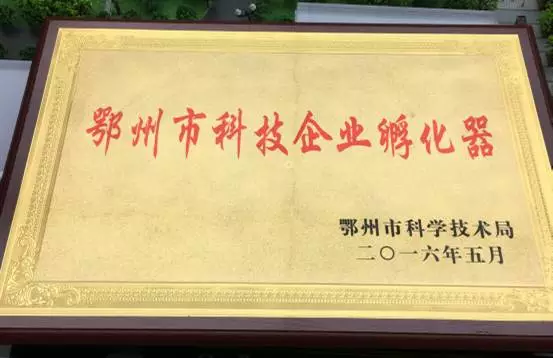 鄂州市科技企业孵化器
鄂州市科学技术局
二〇一六年五月